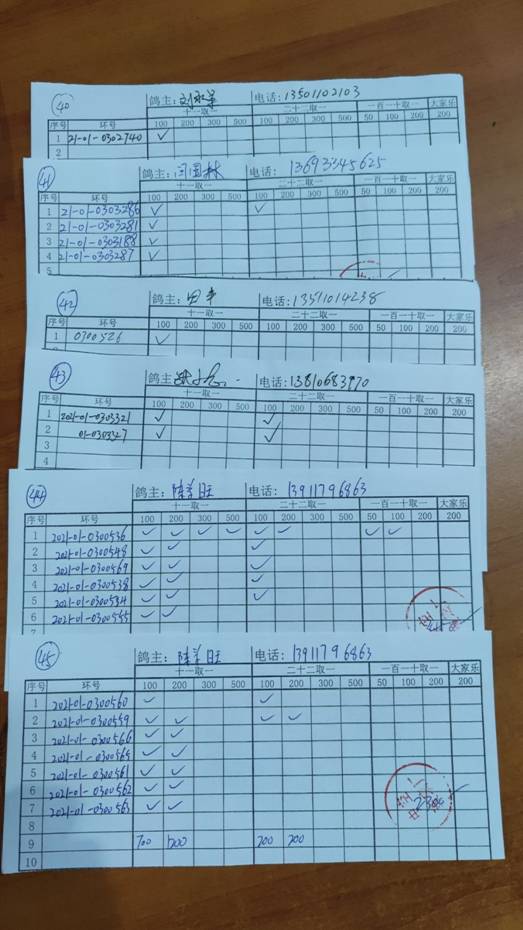 40 鸽主: 电话: 13501102103
序号 环号 十一取一 二十二取一 一百一十取一 大家乐
100 200 300 500 100 200 300 500 50 100 200 200
1 21-01-0302740 ✓
2
41 闫国林 13693345625
序号 环号 十一取一 二十二取一 一百一十取一 大家乐
100 200 300 500 100 200 300 500 50 100 200 200
1 21-01-0303286 ✓ ✓
2 21-01-0303281 ✓
3 21-01-0303188 ✓
4 21-01-0303287 ✓
5
42 鸽主: 田丰 电话: 13511014238
序号 环号 十一取一 二十二取一 一百一十取一 大家乐
100 200 300 500 100 200 300 500 50 100 200 200
1 0700526 ✓
43 鸽主 电话: 13810683970
序号 环号 十一取一 二十二取一 一百一十取一 大家乐
100 200 300 500 100 200 300 500 50 100 200 200
1 2021-01-0303321 ✓ ✓
2 01-0303327 ✓ ✓
3
4
44 鸽主: 陆兰旺 电话: 13911796863
序号 环号 十一取一 二十二取一 一百一十取一 大家乐
100 200 300 500 100 200 300 500 50 100 200 200
1 2021-01-0300536 ✓ ✓ ✓ ✓ ✓ ✓ ✓ ✓
2 2021-01-0300548 ✓ ✓ ✓
3 2021-01-0300569 ✓ ✓ ✓
4 2021-01-0300538 ✓ ✓ ✓
5 2021-01-0300534 ✓ ✓ ✓
6 2021-01-0300555 ✓ ✓
7
45 鸽主: 陆兰旺 电话: 13911796863
序号 环号 十一取一 二十二取一 一百一十取一 大家乐
100 200 300 500 100 200 300 500 50 100 200 200
1 2021-01-0300560 ✓ ✓
2 2021-01-0300559 ✓ ✓ ✓ ✓
3 2021-01-0300566 ✓ ✓
4 2021-01-0300565 ✓ ✓
5 2021-01-0300561 ✓ ✓
6 2021-01-0300562 ✓ ✓
7 2021-01-0300563 ✓ ✓
8
9 700 1200 200 200
10